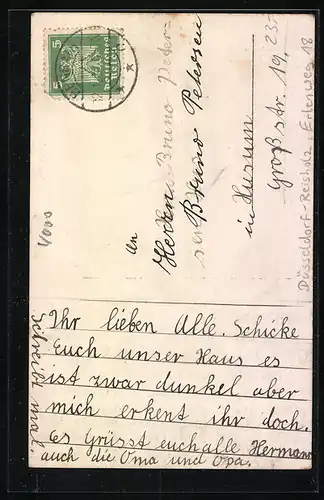 5
Deutsches
Reich
An
Herrn Bruno Peter-
sen
Bruno Petersen
in Husum
Großstr. 19, 23
Düsseldorf-Reisholz, Erlenweg 18
Ihr lieben Alle. Schicke
Euch unser Haus es
ist zwar dunkel aber
mich erkent ihr doch.
Es Grüsst euch alle Hermann
auch die Oma und Opa.
Schreibt mal.